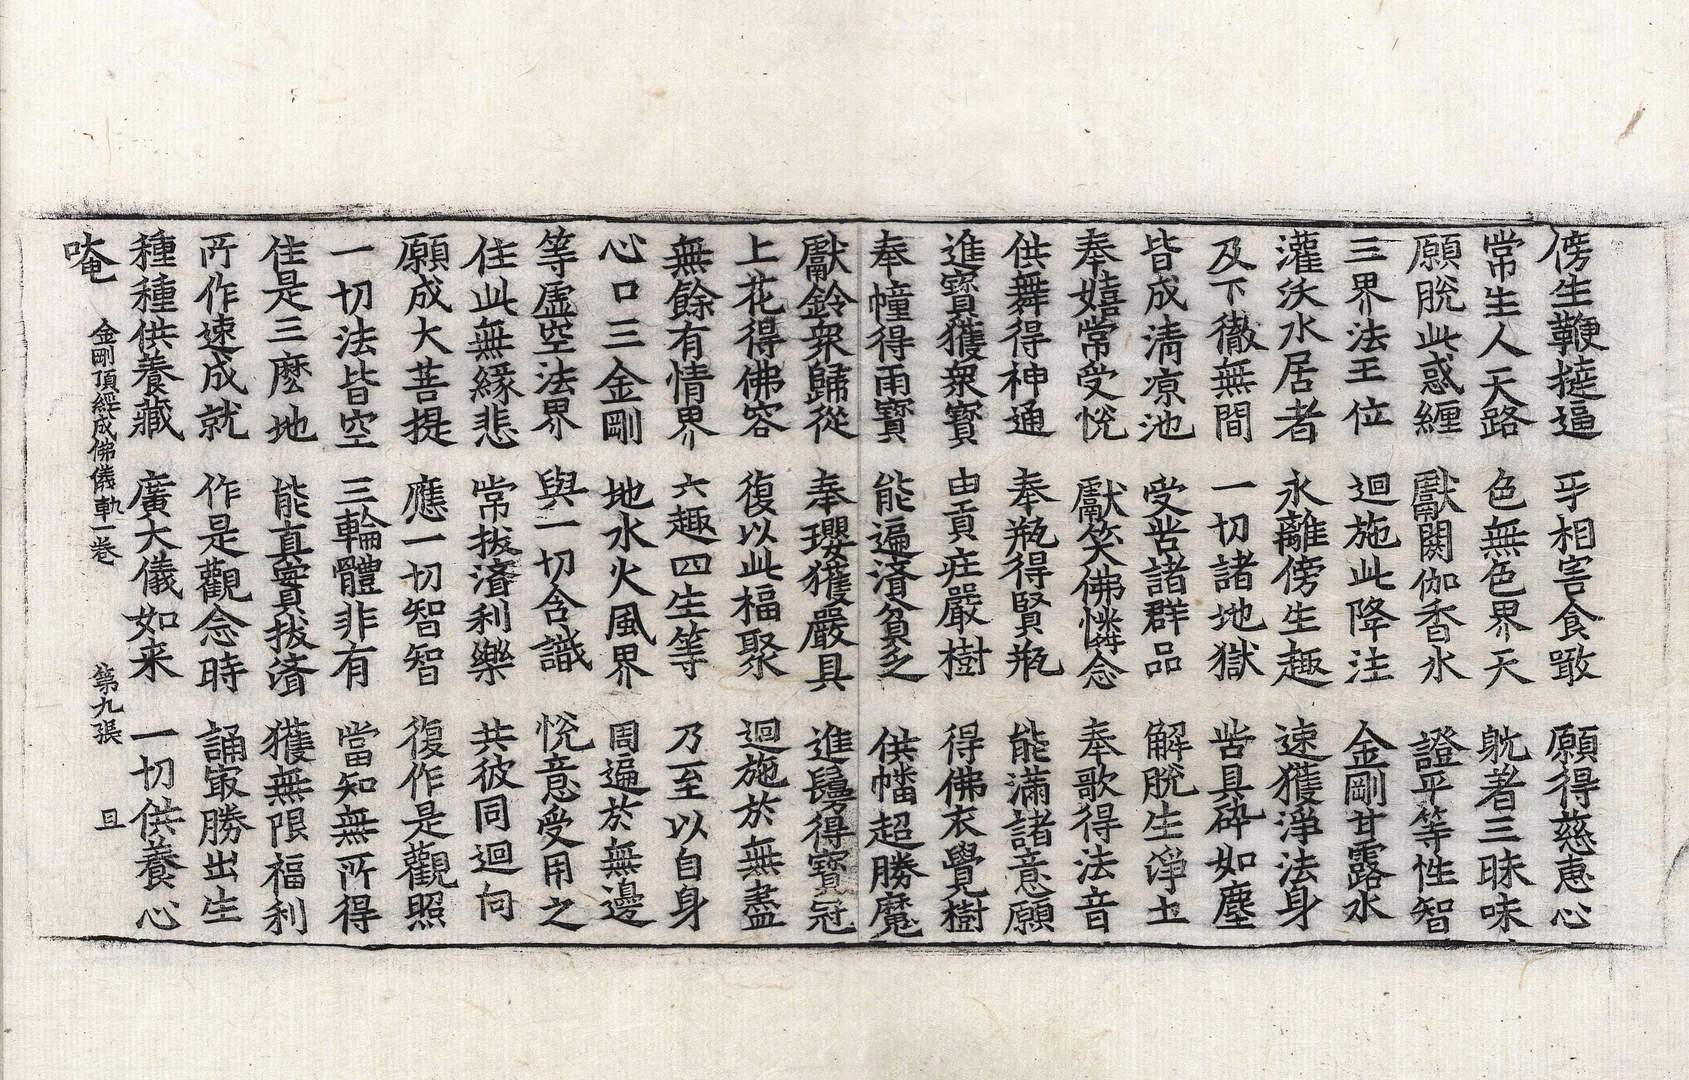 傍生鞭撻逼 㸦相害食噉 願得慈恵心
常生人天路 色無色界天 躭著三昧味
願脫此惑纏 獻閼伽香水 證平等性智
三界法王位 迴施此降注 金剛甘露水
灌沃水居者 永離傍生趣 速獲淨法身
及下徹無間 一切諸地獄 呰具碎如塵
皆成清凉池 受苦諸群品 解脫生淨土
奉嬉常受悅 獻笑佛憐念 奉歌得法音
供舞得神通 奉瓶得賢瓶 能滿諸意願
進寶獲衆寶 由貢疘嚴樹 得佛衣覺樹
奉幢得雨寶 能遍濟貧乏 供幡超勝魔
獻鈴衆歸從 奉瓔獲嚴具 進鬘得寶冠
上花得佛容 復以此福聚 迴施於無盡
無餘有情界 六趣四生等 乃至以自身
心口三金剛 地水火風界 周遍於無邊
等虛空法界 與一切含識 悅意受用之
住此無緣悲 常拔濟利樂 共彼同迴向
願成大菩提 應一切智智 復作是觀照
一切法皆空 三輪體非有 當知無所得
住是三麽地 能真實拔濟 獲無限福利
所作速成就 作是觀念時 誦㝡勝出生
種種供養藏 廣大儀如来 一切供養心
唵
金剛頂經成佛儀軌一卷 第九張 且